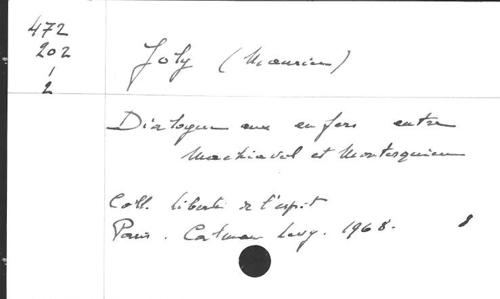 472
202
1
2
Joly (Maurice)
Dialogue aux enfers entre
Machiavel et Montesquieu
Coll. liberté de l'esprit
Paris. Calman Levy. 1968. 8